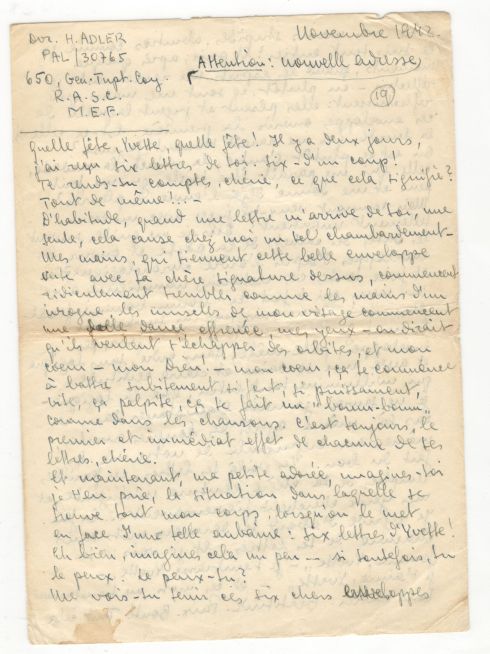 Dvr. H. ADLER
PAL/30765
650, Gen. Trspt. Coy.
R.A.S.C.
M.E.F.
Novembre 1942.
Attention: nouvelle adresse,
19
Quelle fête, Yvette, quelle fête! Il y a deux jours,
j'ai reçu six lettres de toi. Six - d'un coup!
Te rends-tu compte, chérie, ce que cela signifie?
Tout de même!..-
D'habitude, quand une lettre m'arrive de toi, une
seule, cela cause chez moi un tel chambardement-
Mes mains, qui tiennent cette belle enveloppe
avec ta chère signature dessus, commencent
ridiculement trembler comme les mains d'un
ivrogne, les muscles de mon visage commencent
une folle danse effrénée, mes yeux - on dirait
qu'ils veulent s'échapper des orbites, et mon
coeur - mon Dieu! - mon coeur, ça te commence
à battre subitement si fort, si puissamment,
vite, ça palpite, ça te fait un "boum-boum"
comme dans les chansons. C'est toujours, le
premier et immédiat effet de chacune de tes
lettres, chérie.
Et maintenant, ma petite adorée, imagines-toi
je t'en prie, la situation dans laquelle se
trouve tout mon corps, lorsqu'on le met
en face d'une telle aubaine: six lettres d'Yvette!
Eh bien, imagines cela un peu -- si toutefois, tu
le peux. Le peux-tu?
Me vois-tu tenir ces six chers enveloppes